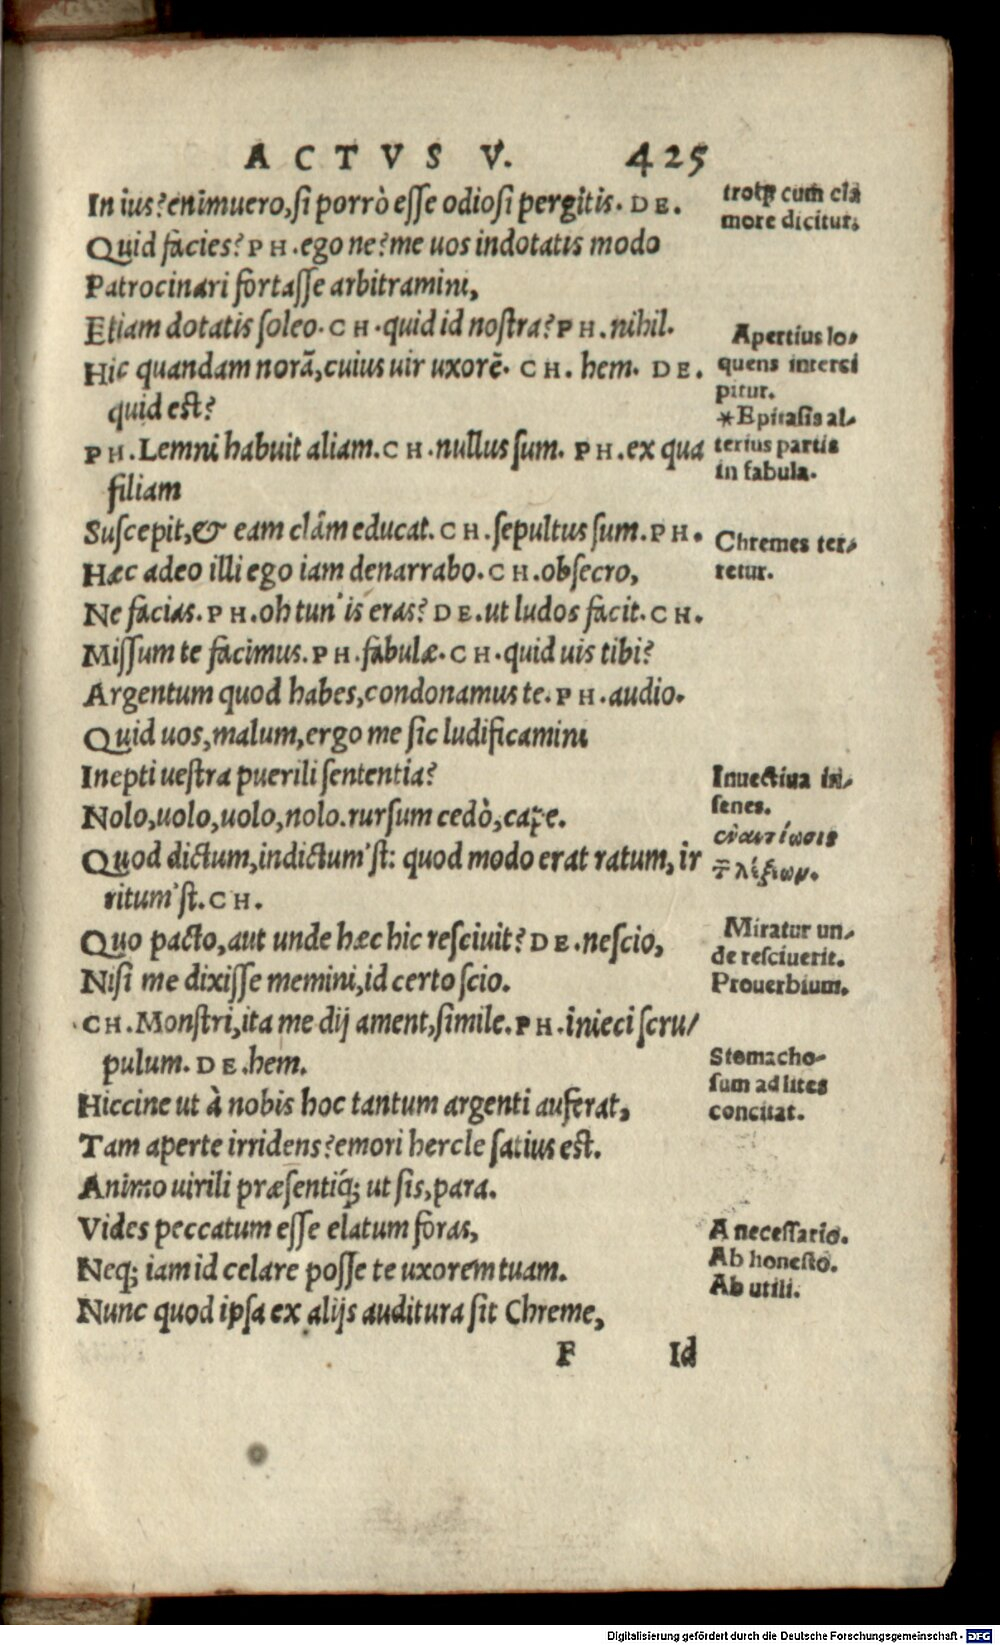 ACTVS V. 425
In ius? enimuero, si porrò esse odiosi pergitis. DE.
Quid facies? PH. ego ne? me uos indotatis modo
Patrocinari fortasse arbitramini,
Etiam dotatis soleo. CH. quid id nostra? PH. nihil.
Hic quandam norã, cuius uir uxorē. CH. hem. DE.
quid est?
PH. Lemni habuit aliam. CH. nullus sum. PH. ex qua
filiam
Suscepit, & eam clâm educat. CH. sepultus sum. PH.
Hæc adeo illi ego iam denarrabo. CH. obsecro,
Ne facias. PH. oh tun' is eras? DE. ut ludos facit. CH.
Missum te facimus. PH. fabulæ. CH. quid uis tibi?
Argentum quod habes, condonamus te. PH. audio.
Quid uos, malum, ergo me sic ludificamini
Inepti uestra puerili sententia?
Nolo, uolo, uolo, nolo. rursum cedò, cape.
Quod dictum, indictum'st: quod modo erat ratum, ir
ritum'st. CH.
Quo pacto, aut unde hæc hic resciuit? DE. nescio,
Nisi me dixisse memini, id certo scio.
CH. Monstri, ita me dij ament, simile. PH. inieci scru/
pulum. DE. hem.
Hiccine ut à nobis hoc tantum argenti auferat,
Tam aperte irridens? emori hercle satius est.
Animo uirili præsentíq; ut sis, para.
Vides peccatum esse elatum foras,
Neq; iam id celare posse te uxorem tuam.
Nunc quod ipsa ex alijs auditura sit Chreme,
F Id
cum cla
more dicitur.
Apertius lo-
quens interci
pitur.
*Epitasis al-
terius partis
in fabula.
Chremes ter-
retur.
Inuectiua in-
senes.
ἐναντίωσις
λέξεων.
Miratur un-
de resciuerit.
Prouerbium.
Stomacho-
sum ad lites
concitat.
A necessario.
Ab honesto.
Ab utili.
Digitalisierung gefördert durch die Deutsche Forschungsgemeinschaft - DFG